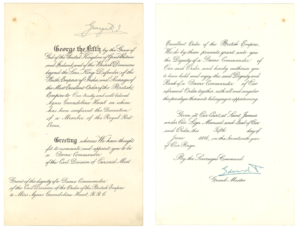 George the Fifth by the Grace of
God of the United Kingdom of Great Britain
and Ireland and of the British Dominions
beyond the Seas King Defender of the
Faith Emperor of India and Sovereign of
the Most Excellent Order of the British
Empire to Our trusty and well beloved
Agnes Gwendoline Hunt
of a Member of the Royal Red
Cross
Greeting whereas We have thought
fit to nominate and appoint you to be
a Dame Commander
of the Civil Division of Our said Most
Excellent Order of the British Empire
We do by these presents grant unto you
the Dignity of a Dame Commander of
Our said Order and hereby authorise you
to have hold and enjoy the said Dignity and
Rank of a Dame Commander of Our
aforesaid Order together with all and singular
the privileges thereunto belonging or appertaining
Given at Our Court at Saint James's
under Our Sign Manual and Seal of Our
said Order this Fifth day of
June
Our Reign
By the Sovereign's Command
Grand Master
Grant of the dignity of a Dame Commander
of the Civil Division of the Order of the British Empire
to Miss Agnes Gwendoline Hunt R.R.C.